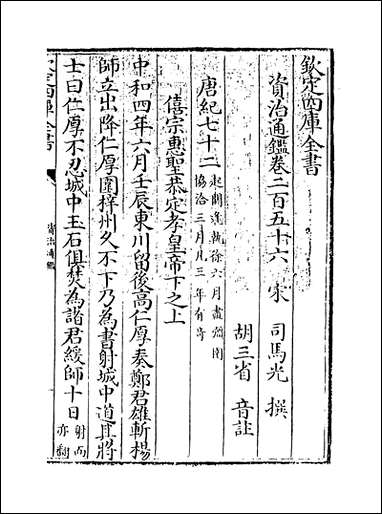 欽定四庫全書
資治通鑑卷二百五十六 宋 司馬光 撰
胡三省 音註
唐紀七十二 起閼逢執徐六月盡強圉
協洽三月凡三年有奇
僖宗惠聖恭定孝皇帝下之上
中和四年六月壬辰東川留後高仁厚奏鄭君雄斬楊
師立出降仁厚圍梓州久不下乃為書射城中道其將
士曰仁厚不忍城中玉石俱焚為諸君緩師十日 射而
亦翻
欽定四庫全書
資治通鑑